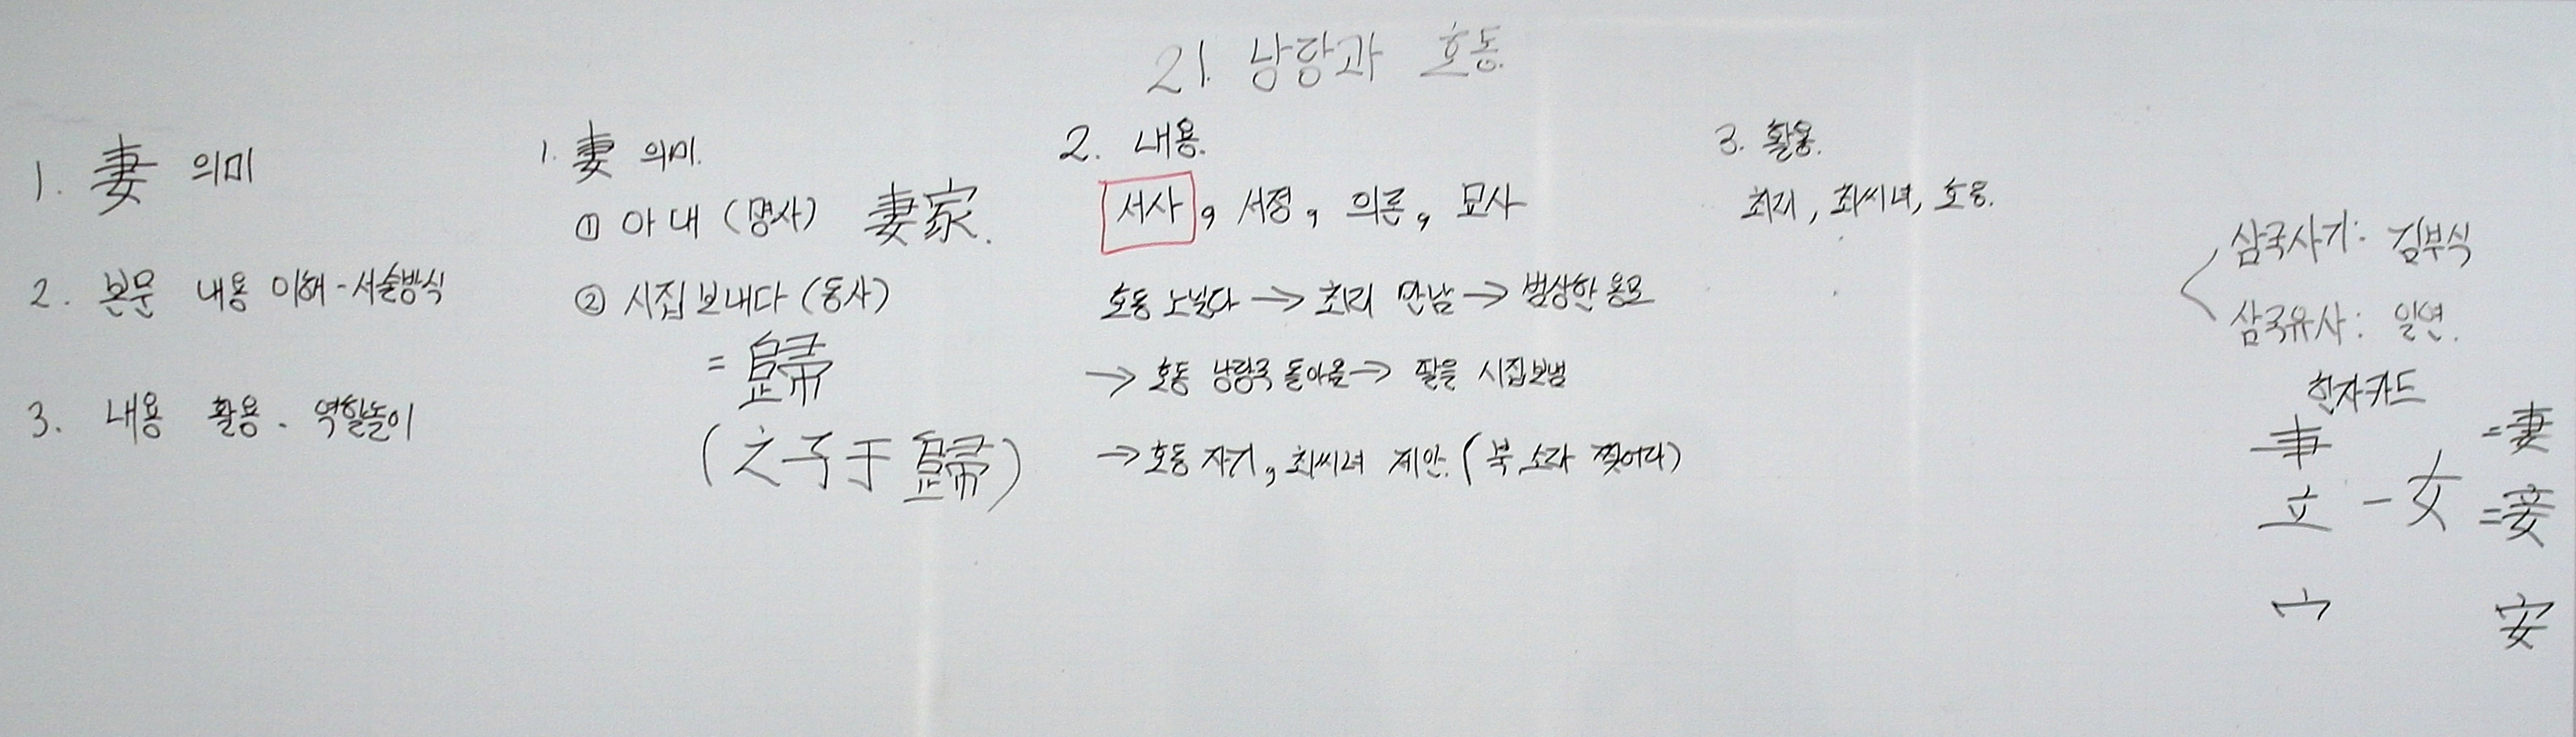 21. 낭랑과 호동
1. 妻 의미
2. 본문 내용 이해 - 서술방식
3. 내용 활용 - 역할놀이
1. 妻 의미.
① 아내 (명사) 妻家.
② 시집보내다 (동사)
= 歸
(之子于歸)
2. 내용.
서사, 서정, 의론, 묘사
호동 노닐다 → 최리 만남 → 범상한 용모
→ 호동 낭랑국 돌아옴 → 딸을 시집보냄
→ 호동 자기, 최씨녀 제안. (북 소라 찢어라)
3. 활용.
최리, 최씨녀, 호동.
삼국사기: 김부식
삼국유사: 일연.
한자카드
= 妻
立 - 女 = 妾
宀 安